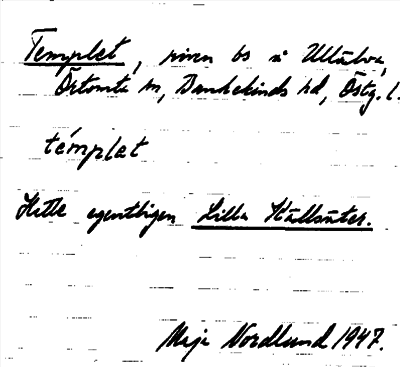 Templet, riven bs i Ullälva,
Örtomta sn, Bankekinds hd, Östg. l.
témplat
Hette egentligen Lilla Källsäter.
Maja Nordlund 1947.